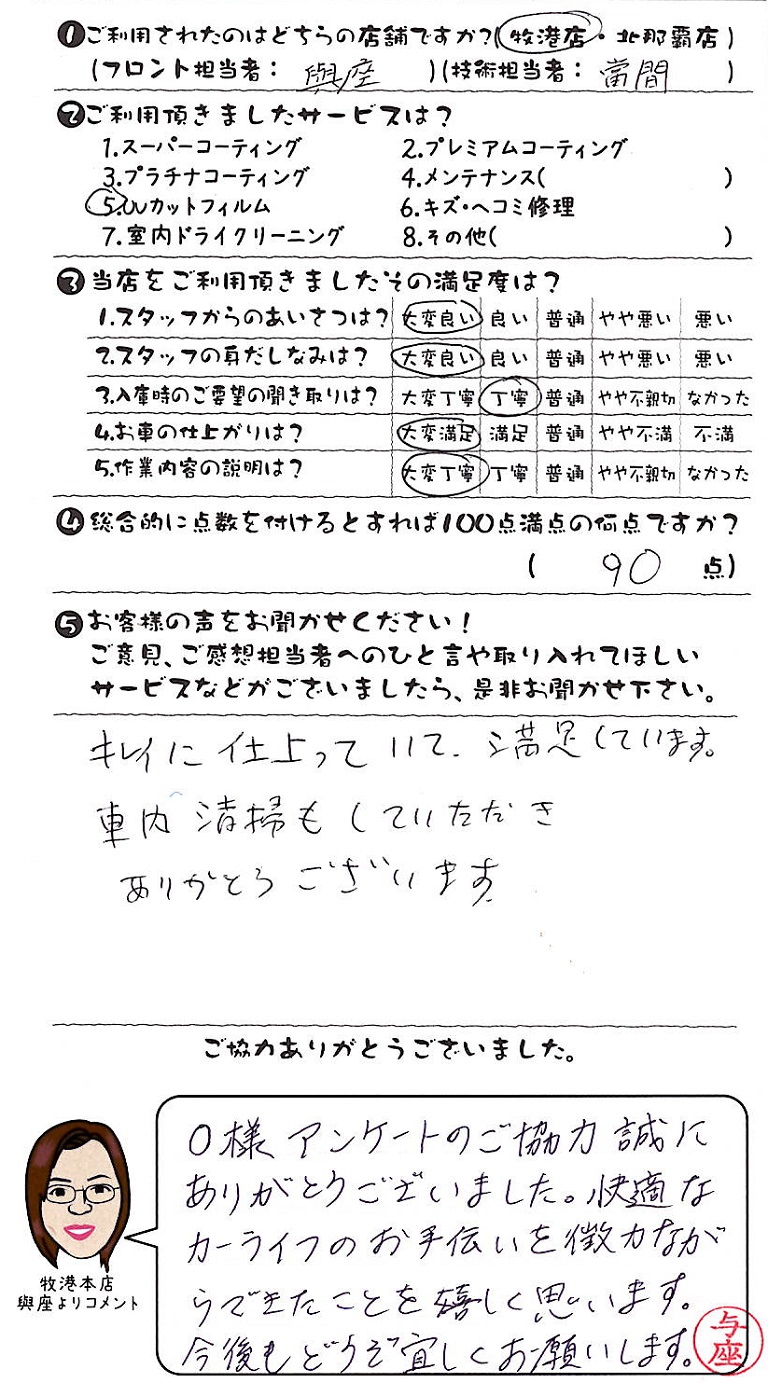 ❶ご利用されたのはどちらの店舗ですか?(牧港店・北那覇店)
(フロント担当者: 與座 )(技術担当者: 當間 )
❷ご利用頂きましたサービスは?
1.スーパーコーティング 2.プレミアムコーティング
3.プラチナコーティング 4.メンテナンス( )
5.UVカットフィルム 6.キズ・ヘコミ修理
7.室内ドライクリーニング 8.その他( )
❸当店をご利用頂きましたその満足度は?
1.スタッフからのあいさつは? 大変良い 良い 普通 やや悪い 悪い
2.スタッフの身だしなみは? 大変良い 良い 普通 やや悪い 悪い
3.入庫時のご要望の聞き取りは? 大変丁寧 丁寧 普通 やや不親切 なかった
4.お車の仕上がりは? 大変満足 満足 普通 やや不満 不満
5.作業内容の説明は? 大変丁寧 丁寧 普通 やや不親切 なかった
❹総合的に点数を付けるとすれば100点満点の何点ですか?
( 90 点)
❺お客様の声をお聞かせください!
ご意見、ご感想担当者へのひと言や取り入れてほしい
サービスなどがございましたら、是非お聞かせ下さい。
キレイに仕上っていて、満足しています。
車内清掃もしていただき
ありがとうございます
ご協力ありがとうございました。
O様 アンケートのご協力 誠に
ありがとうございました。快適な
カーライフのお手伝いを微力なが
らできたことを嬉しく思います。
今後もどうぞ宜しくお願いします。
与座
牧港本店
與座よりコメント